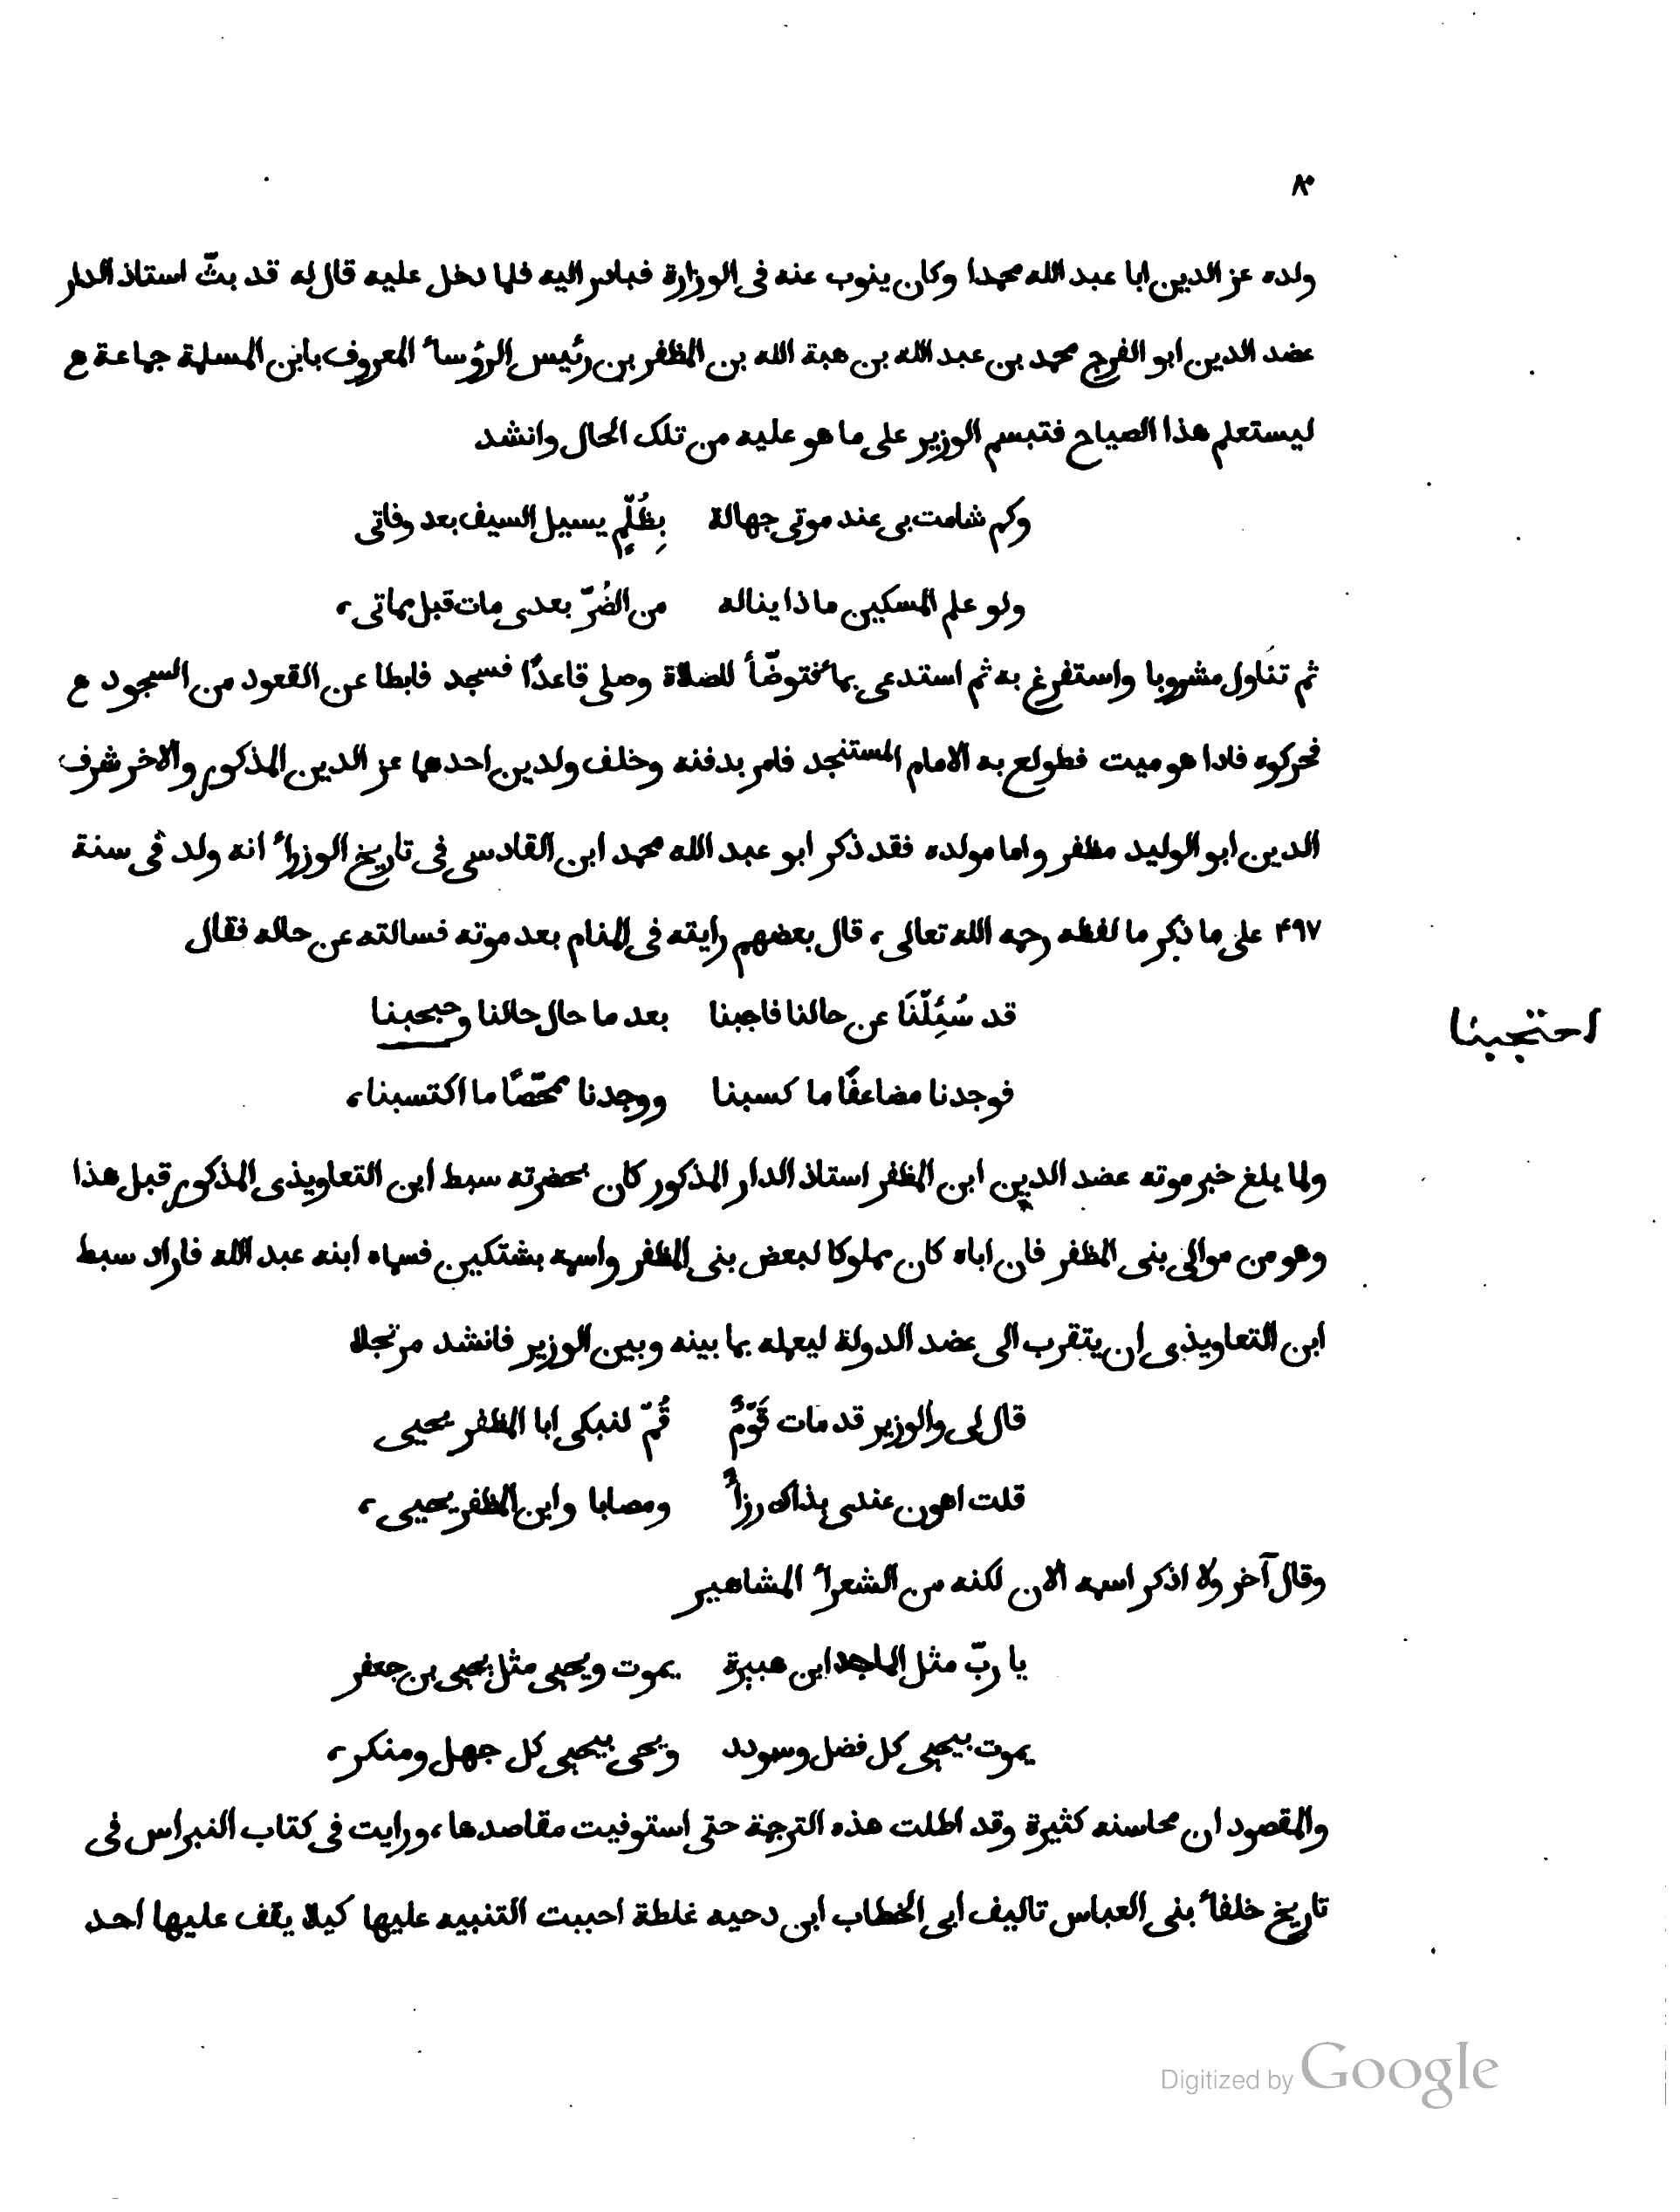 ٨٠
ولده عز الدين ابا عبد الله محمدا وكان ينوب عنه فى الوزارة فبادر اليه فلما دخل عليه قال له قد بثّ استاذ الدار
عضد الدين ابو الفرج محمد بن عبد الله بن هبة الله بن المظفر بن رئيس الرؤساء المعروف بابن المسلمة جماعة ع
ليستعلم هذا الصياح فتبسم الوزير على ما هو عليه من تلك الحال وانشد
وكم شامت بى عند موتى جهالة بِظُلْمٍ يسيل السيف بعد وفاتى
ولو علم المسكين ماذا يناله من الضُرّ بعدى مات قبل مماتى،
ثم تناول مشروبا واستفرغ به ثم استدعى بماء فتوضّأ للصلاة وصلى قاعدًا فسجد فابطا عن القعود من السجود ع
فحركوه فاذا هو ميت فطولع به الامام المستنجد فامر بدفنه وخلف ولدين احدهما عز الدين المذكور والاخر شرف
الدين ابو الوليد مظفر واما مولده فقد ذكر ابو عبد الله محمد ابن القادسى فى تاريخ الوزراء انه ولد فى سنة
۴۹۷ على ما ذكر ما لفظه رحمه الله تعالى، قال بعضهم رايته فى المنام بعد موته فسالته عن حاله فقال
قد سُئِلْنَا عن حالنا فاجبنا بعد ما حال حالنا وحجبنا
احتجبنا
فوجدنا مضاعفًا ما كسبنا ووجدنا ممحّصًا ما اكتسبنا،
ولما بلغ خبر موته عضد الدين ابن المظفر استاذ الدار المذكور كان بحضرته سبط ابن التعاويذى المذكور قبل هذا
وهو من موالى بنى المظفر فان اباه كان مملوكا لبعض بنى المظفر واسمه بشتكين فسماه ابنه عبد الله فاراد سبط
ابن التعاويذى ان يتقرب الى عضد الدولة ليعمله بما بينه وبين الوزير فانشد مرتجلا
قال لى والوزير قد مات قَوْمٌ قُمْ لنبكى ابا المظفر يحيى
قلت اهون عندى بذاك رزأً ومصابا وابن المظفر يحيى،
وقال آخر ولا اذكر اسمه الان لكنه من الشعراء المشاهير
يا ربّ مثل الماجد ابن هبيرة يموت ويحيى مثل يحيى بن جعفر
يموت بيحيى كل فضل وسودد ويحى بيحيى كل جهل ومنكر،
والمقصود ان محاسنه كثيرة وقد اطلت هذه الترجمة حتى استوفيت مقاصدها، ورايت فى كتاب النبراس فى
تاريخ خلفاء بنى العباس تاليف ابى الخطاب ابن دحيه غلطة احببت التنبيه عليها كيلا يقف عليها احد
Digitized by Google